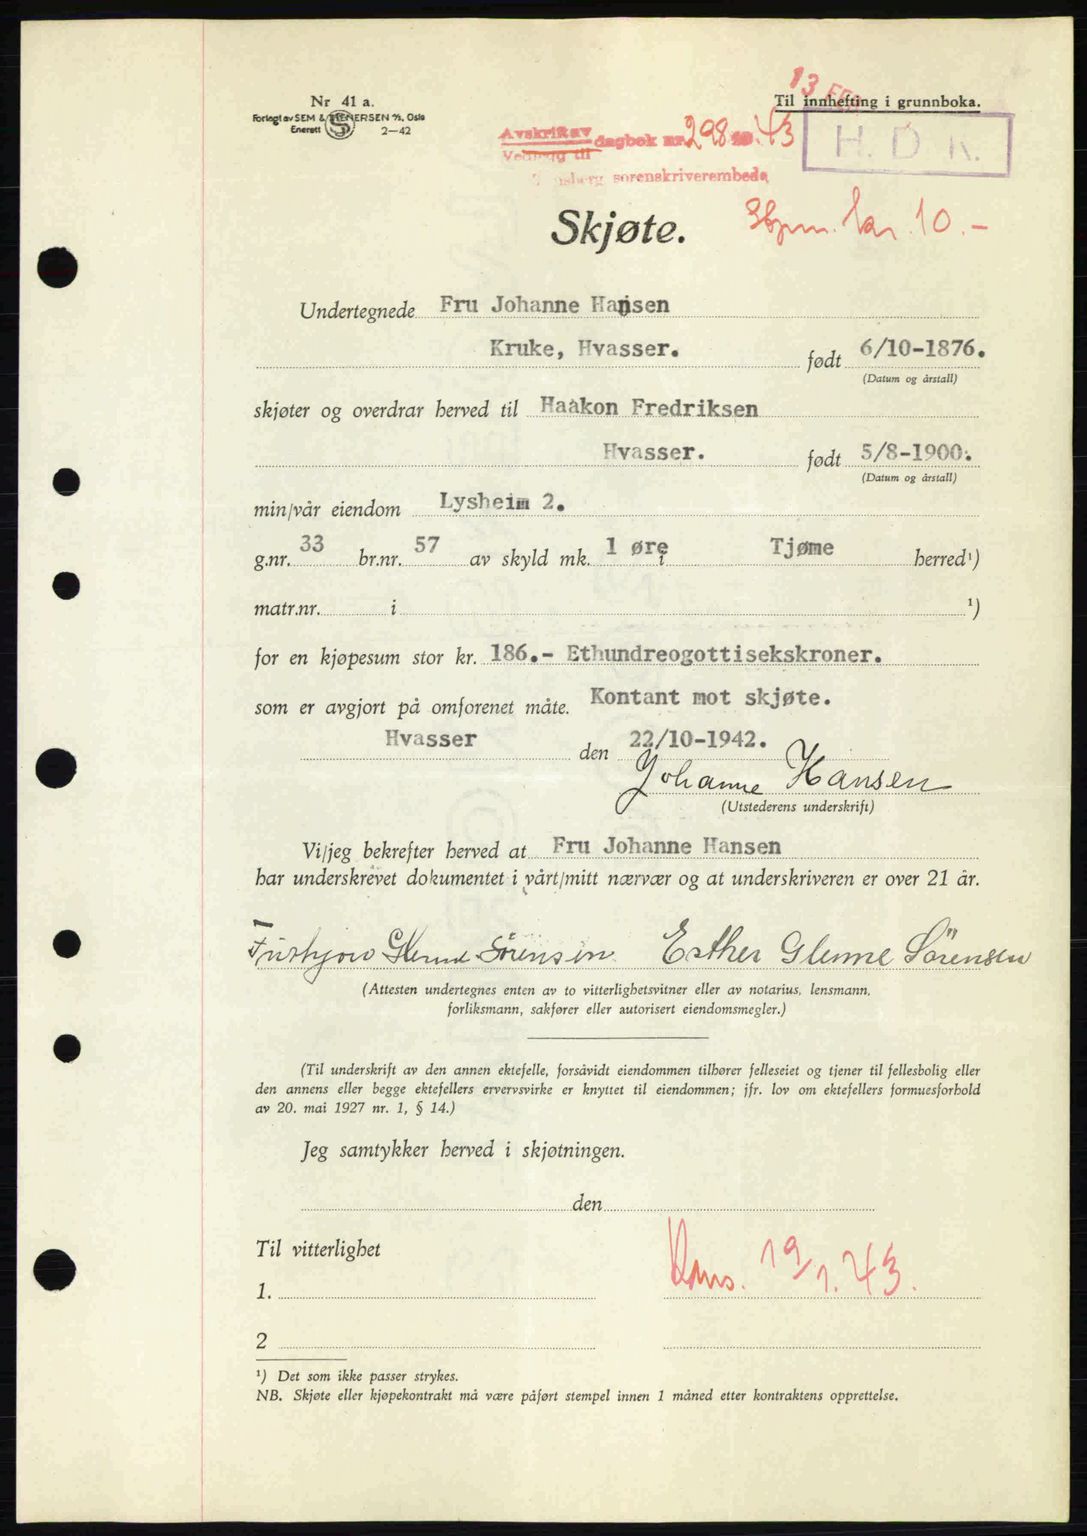 Nr 41 a.
Forlagt av SEM & STENERSEN A/S, Oslo
Enerett S 2—42
13 FEB
Til innhefting i grunnboka.
Avskrift av dagbok nr. 298 19 43
Vedlegg til
Tønsberg sorenskriverembede
H. D. K.
Skjøte.
kr. 10.-
Undertegnede Fru Johanne Hansen
Kruke, Hvasser. født 6/10-1876.
(Datum og årstall)
skjøter og overdrar herved til Haakon Fredriksen
Hvasser. født 5/8-1900.
(Datum og årstall)
min/vår eiendom Lysheim 2.
g.nr. 33 br.nr. 57 av skyld mk. 1 øre i Tjøme herred¹)
matr.nr. i ¹)
for en kjøpesum stor kr. 186.- Ethundreogottisekskroner.
som er avgjort på omforenet måte. Kontant mot skjøte.
Hvasser den 22/10-1942.
Johanne Hansen
(Utstederens underskrift)
Vi/jeg bekrefter herved at Fru Johanne Hansen
har underskrevet dokumentet i vårt/mitt nærvær og at underskriveren er over 21 år.
Glenne Sörensen Esther Glenne Sörensen
(Attesten undertegnes enten av to vitterlighetsvitner eller av notarius, lensmann,
forliksmann, sakfører eller autorisert eiendomsmegler.)
(Til underskrift av den annen ektefelle, forsåvidt eiendommen tilhører felleseiet og tjener til fellesbolig eller
den annens eller begge ektefellers ervervsvirke er knyttet til eiendommen; jfr. lov om ektefellers formuesforhold
av 20. mai 1927 nr. 1, § 14.)
Jeg samtykker herved i skjøtningen.
den
Til vitterlighet
Kons. 19/1.43.
1.
2
¹) Det som ikke passer strykes.
NB. Skjøte eller kjøpekontrakt må være påført stempel innen 1 måned etter kontraktens opprettelse.